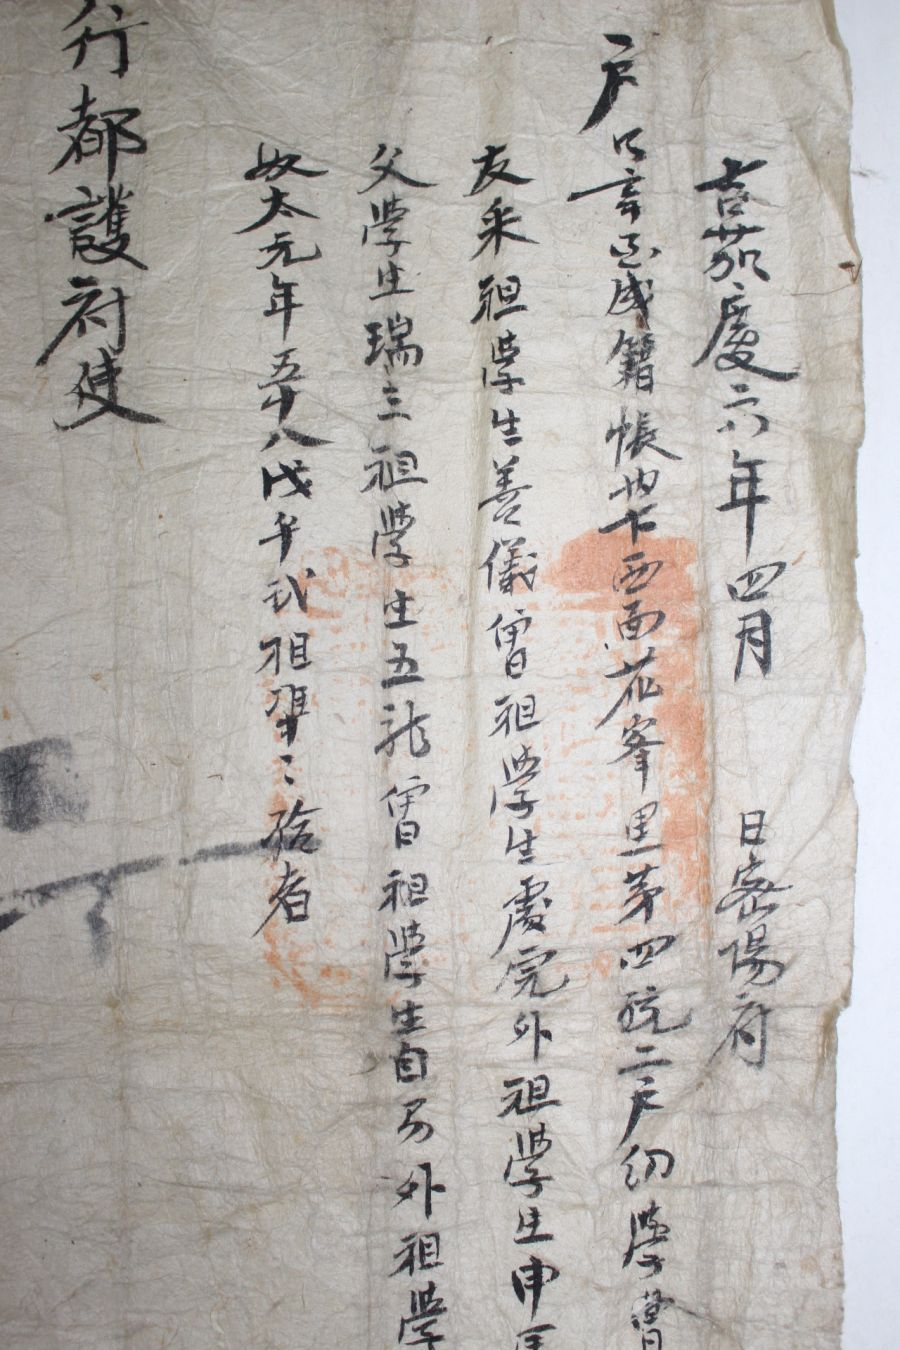 嘉慶六年四月 日密陽府
戶口辛酉成籍帳內下西面花峯里第四統二戶幼學曺
友來祖學生善儀曾祖學生處完外祖學生申
父學生瑞三祖學生五龍曾祖學生自 外祖學
奴太元年五十八戊午式祖準二給者
行都護府使